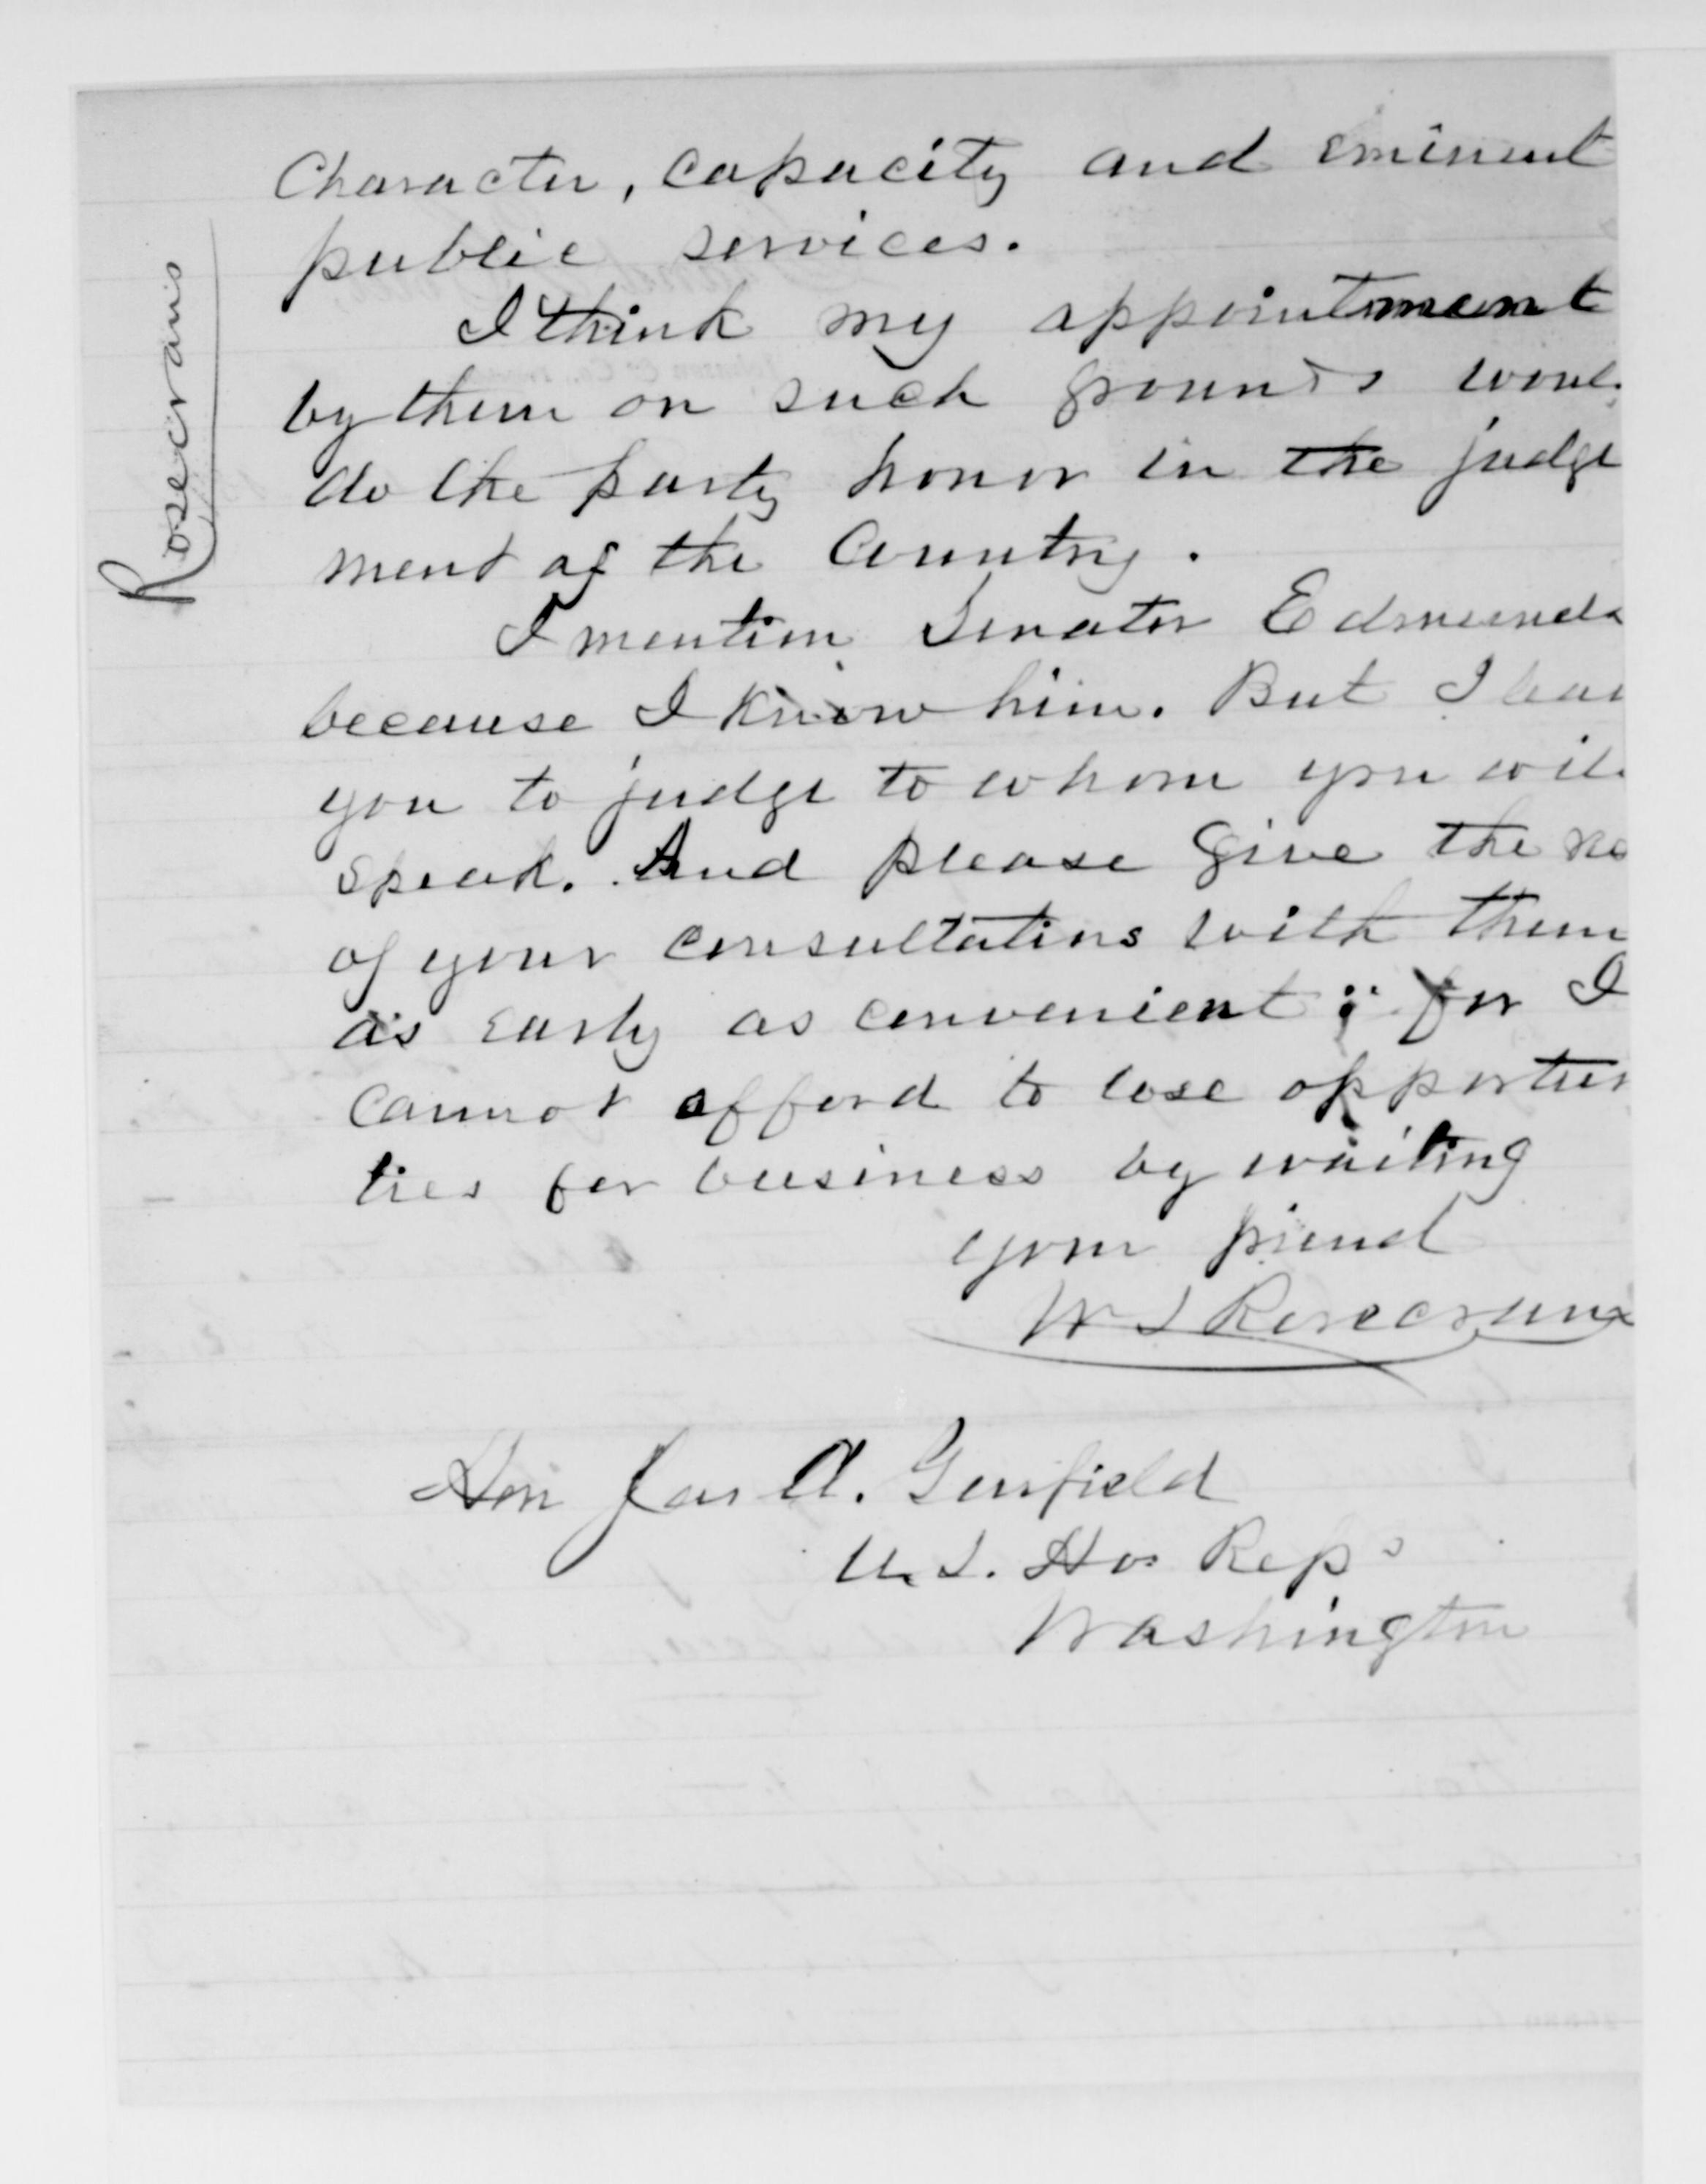 Rosecrans
Character, capacity and eminent
public services.
I think my appointment
by them on such grounds woul
do the party honor in the judge
ment of the Country.
I mention Senator Edmunds
because I know him. But I
you to judge to whom you wil
speak. And please give the
of your consultations with them
as early as convenient; for I
cannot afford to lose opportun
ties for business by waiting
your friend
W S Rosecrans
Hon Jas A. Garfield
U.S. Hos Reps
Washington